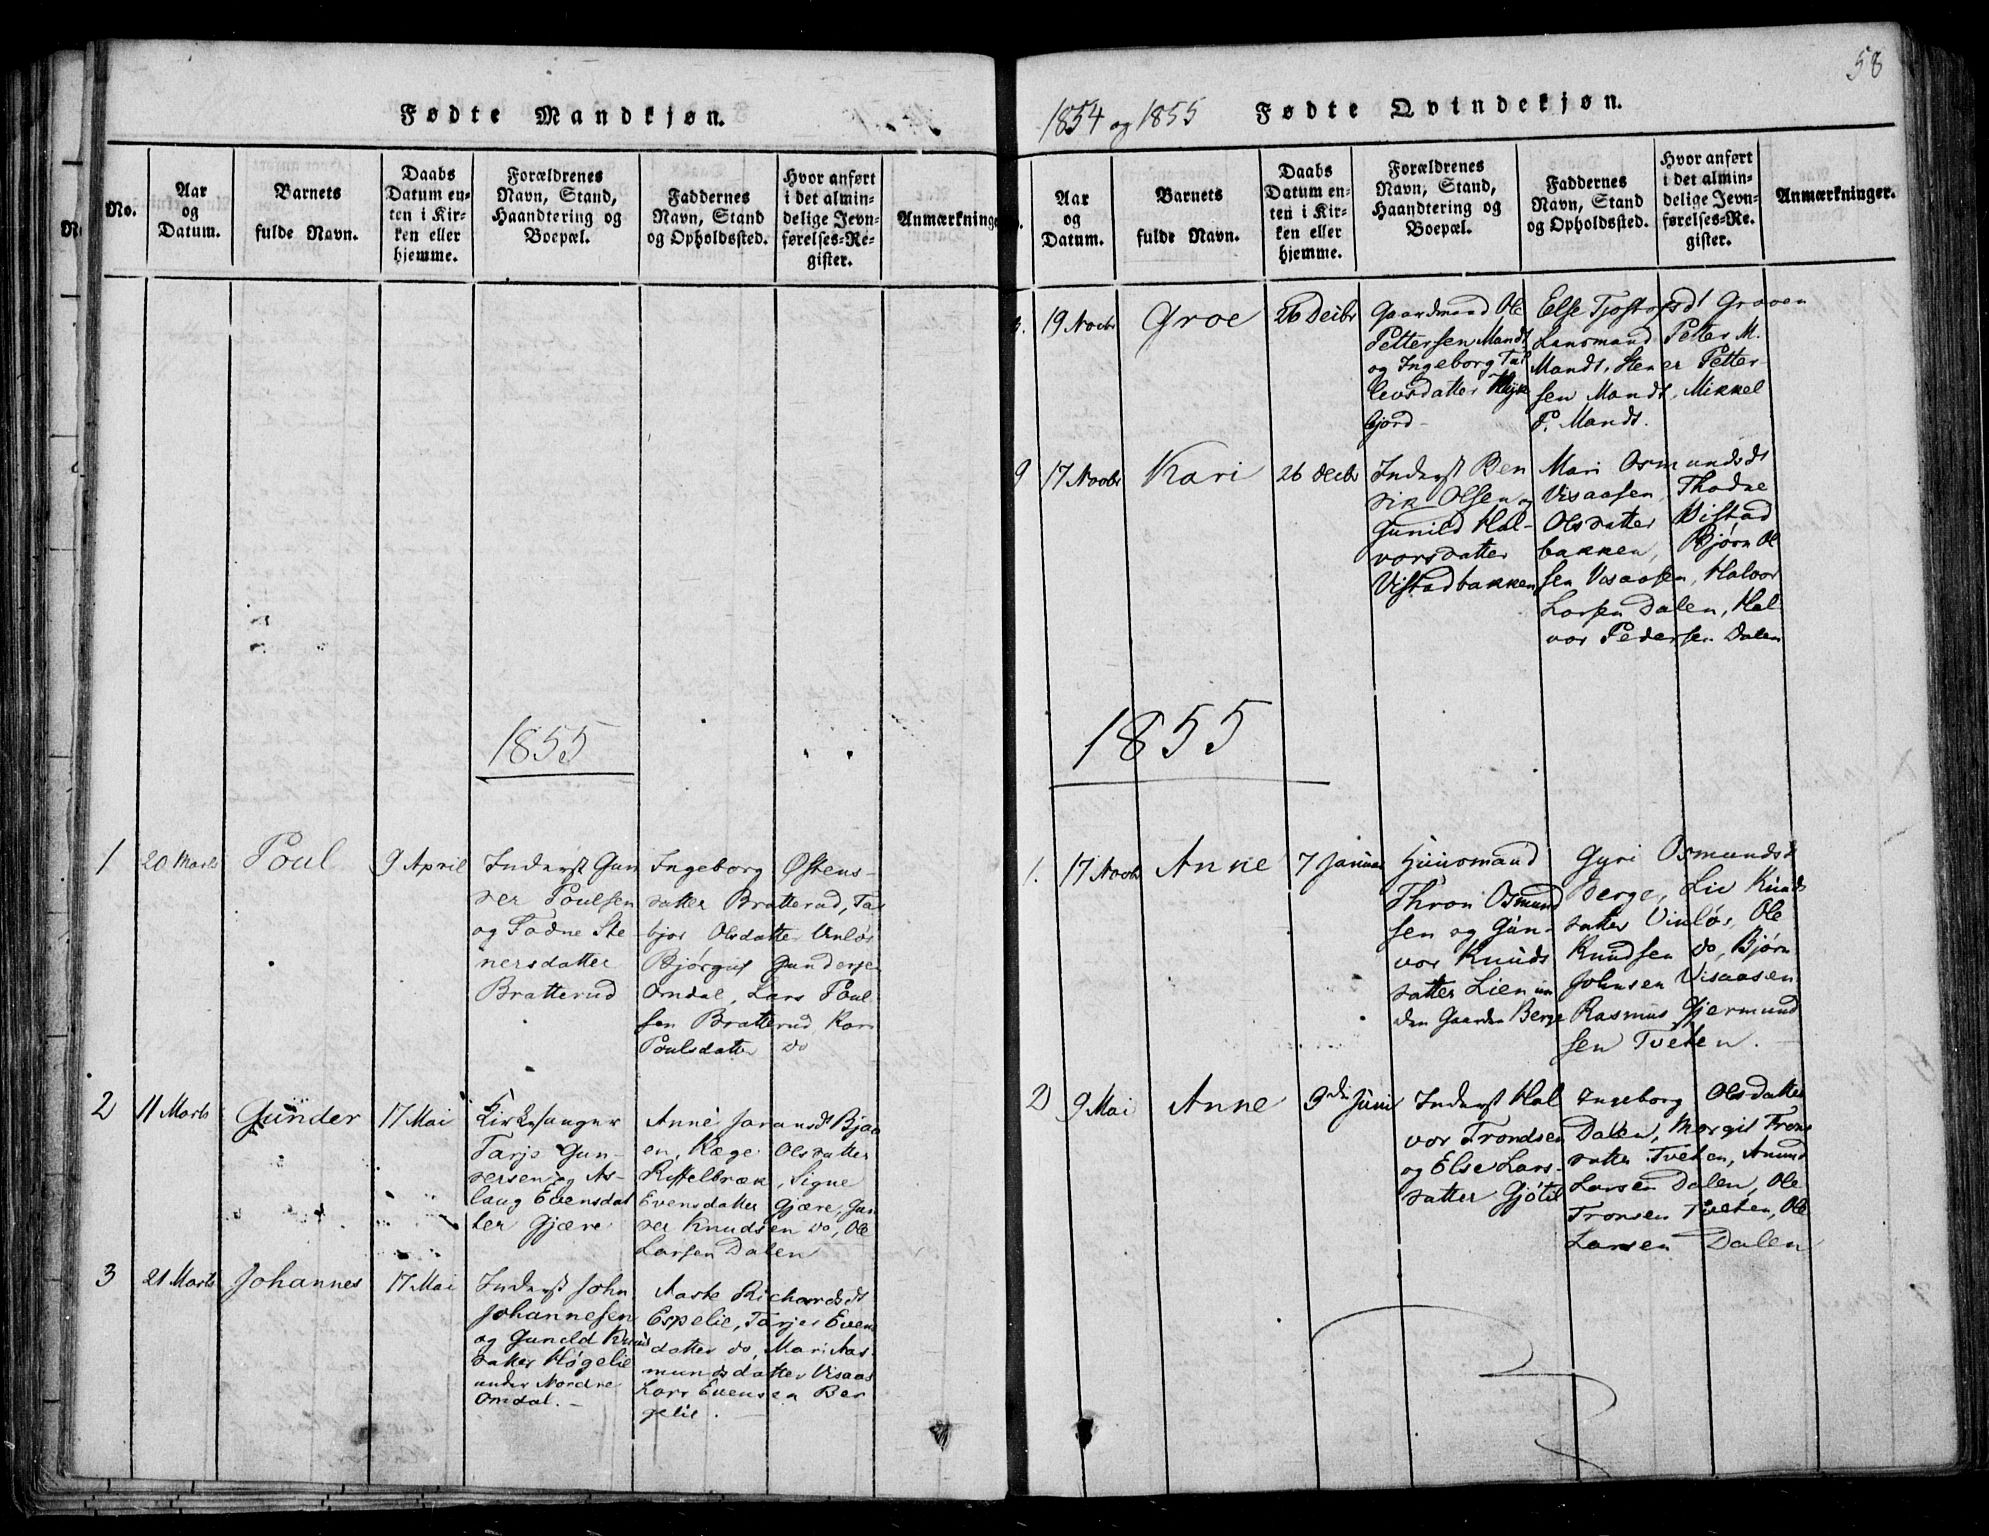 58
Fødte Mandkjøn.
No.
Aar
og
Datum.
Barnets
fulde Navn.
Daabs
Datum en-
ten i Kir-
ken eller
hjemme.
Forældrenes
Navn, Stand,
Haandtering og
Boepæl.
Faddernes
Navn, Stand
og Opholdssted.
Hvor anført
i det almin-
delige Jevn-
førelses-Re-
gister.
Anmærkninger
1855
1
20 Marts
Poul
9 April
Inderst Gun
der Poulsen
og Todne Ste
nersdatter
Bratterud
Ingeborg Østens-
datter Bratterud, Tar
bjør Olsdatter Vinløs
Bjørgul Gundersen
Omdal, Lars Poul
sen Bratterud Kari
Poulsdatter do
2
11 Marts
Gunder
17 Mai
Kirkesanger
Tarje Gun-
dersen og As-
laug Evensdat
ter Gjære
Anne Joransdt Bjaa
en, Ræge Olsdatter
Røttelbræk, Signe
Evensdatter Gjære, Gun
der Knudsen do, Ole
Larsen Dalen
3
21 Marts
Johannes
17 Mai
Inderst John
Johannesen
og Guneld Knuds
datter Høgelie
under Nordre
Omdal.
Aaste Richardsdt
Espelie, Tarjer Evens
datter do, Mari Aas-
mundsdatter Visaas
Lars Evensen Ber
gelie.
1854 og 1855
Fødte Qvindekjøn.
Aar
og
Datum.
Barnets
fulde Navn.
Daabs
Datum en-
ten i Kir-
ken eller
hjemme.
Forældrenes
Navn, Stand,
Haandtering og
Boepæl.
Faddernes
Navn, Stand
og Opholdssted.
Hvor anført
i det almin-
delige Jevn-
førelses-Re-
gister.
Anmærkninger.
19 Novbr
Groe
26 Decbr
Gaardmand Ole
Pettersen Mandt
og Ingeborg Tal
levsdatter
gjord
Else Tjostofsdt Graven
Lansmand Petter M.
Mandt, Stener Petter-
sen Mandt, Mikkel
P. Mandt.
9
17 Novbr
Kari
26 Decbr
Inderst Ben
dik Olsen og
Gunild Hal-
vorsdatter
Vistadbakken
Mari Osmundsdt
Visaasen, Thodne
Olsdatter Vistad
bakken, Bjørn Ol
sen Visaasen, Halvor
Larsen Dalen, Hal-
vor Pedersen Dalen
1855
1.
17 Novbr
Anne
7 Januar
Huusmand
Thron Osmund
sen og Gun-
vor Knuds
datter Lien un
den Gaarden Berge
Gyri Osmundsdt
Berge, Liv Knuds
datter Vinløs, Ole
Knudsen do, Bjørn
Johnsen Visaasen
Rasmus Gjermund
sen Tveten.
2
9 Mai
Anne
3de Juni
Inderst Hal
vor Trondsen
og Else Lars-
datter Gjøtil
Ingeborg Olsdatter
Dalen, Margit Trons
datter Tveten, Amund
Larsen Dalen, Ole
Tronsen Tveten, Ole
Larsen Dalen